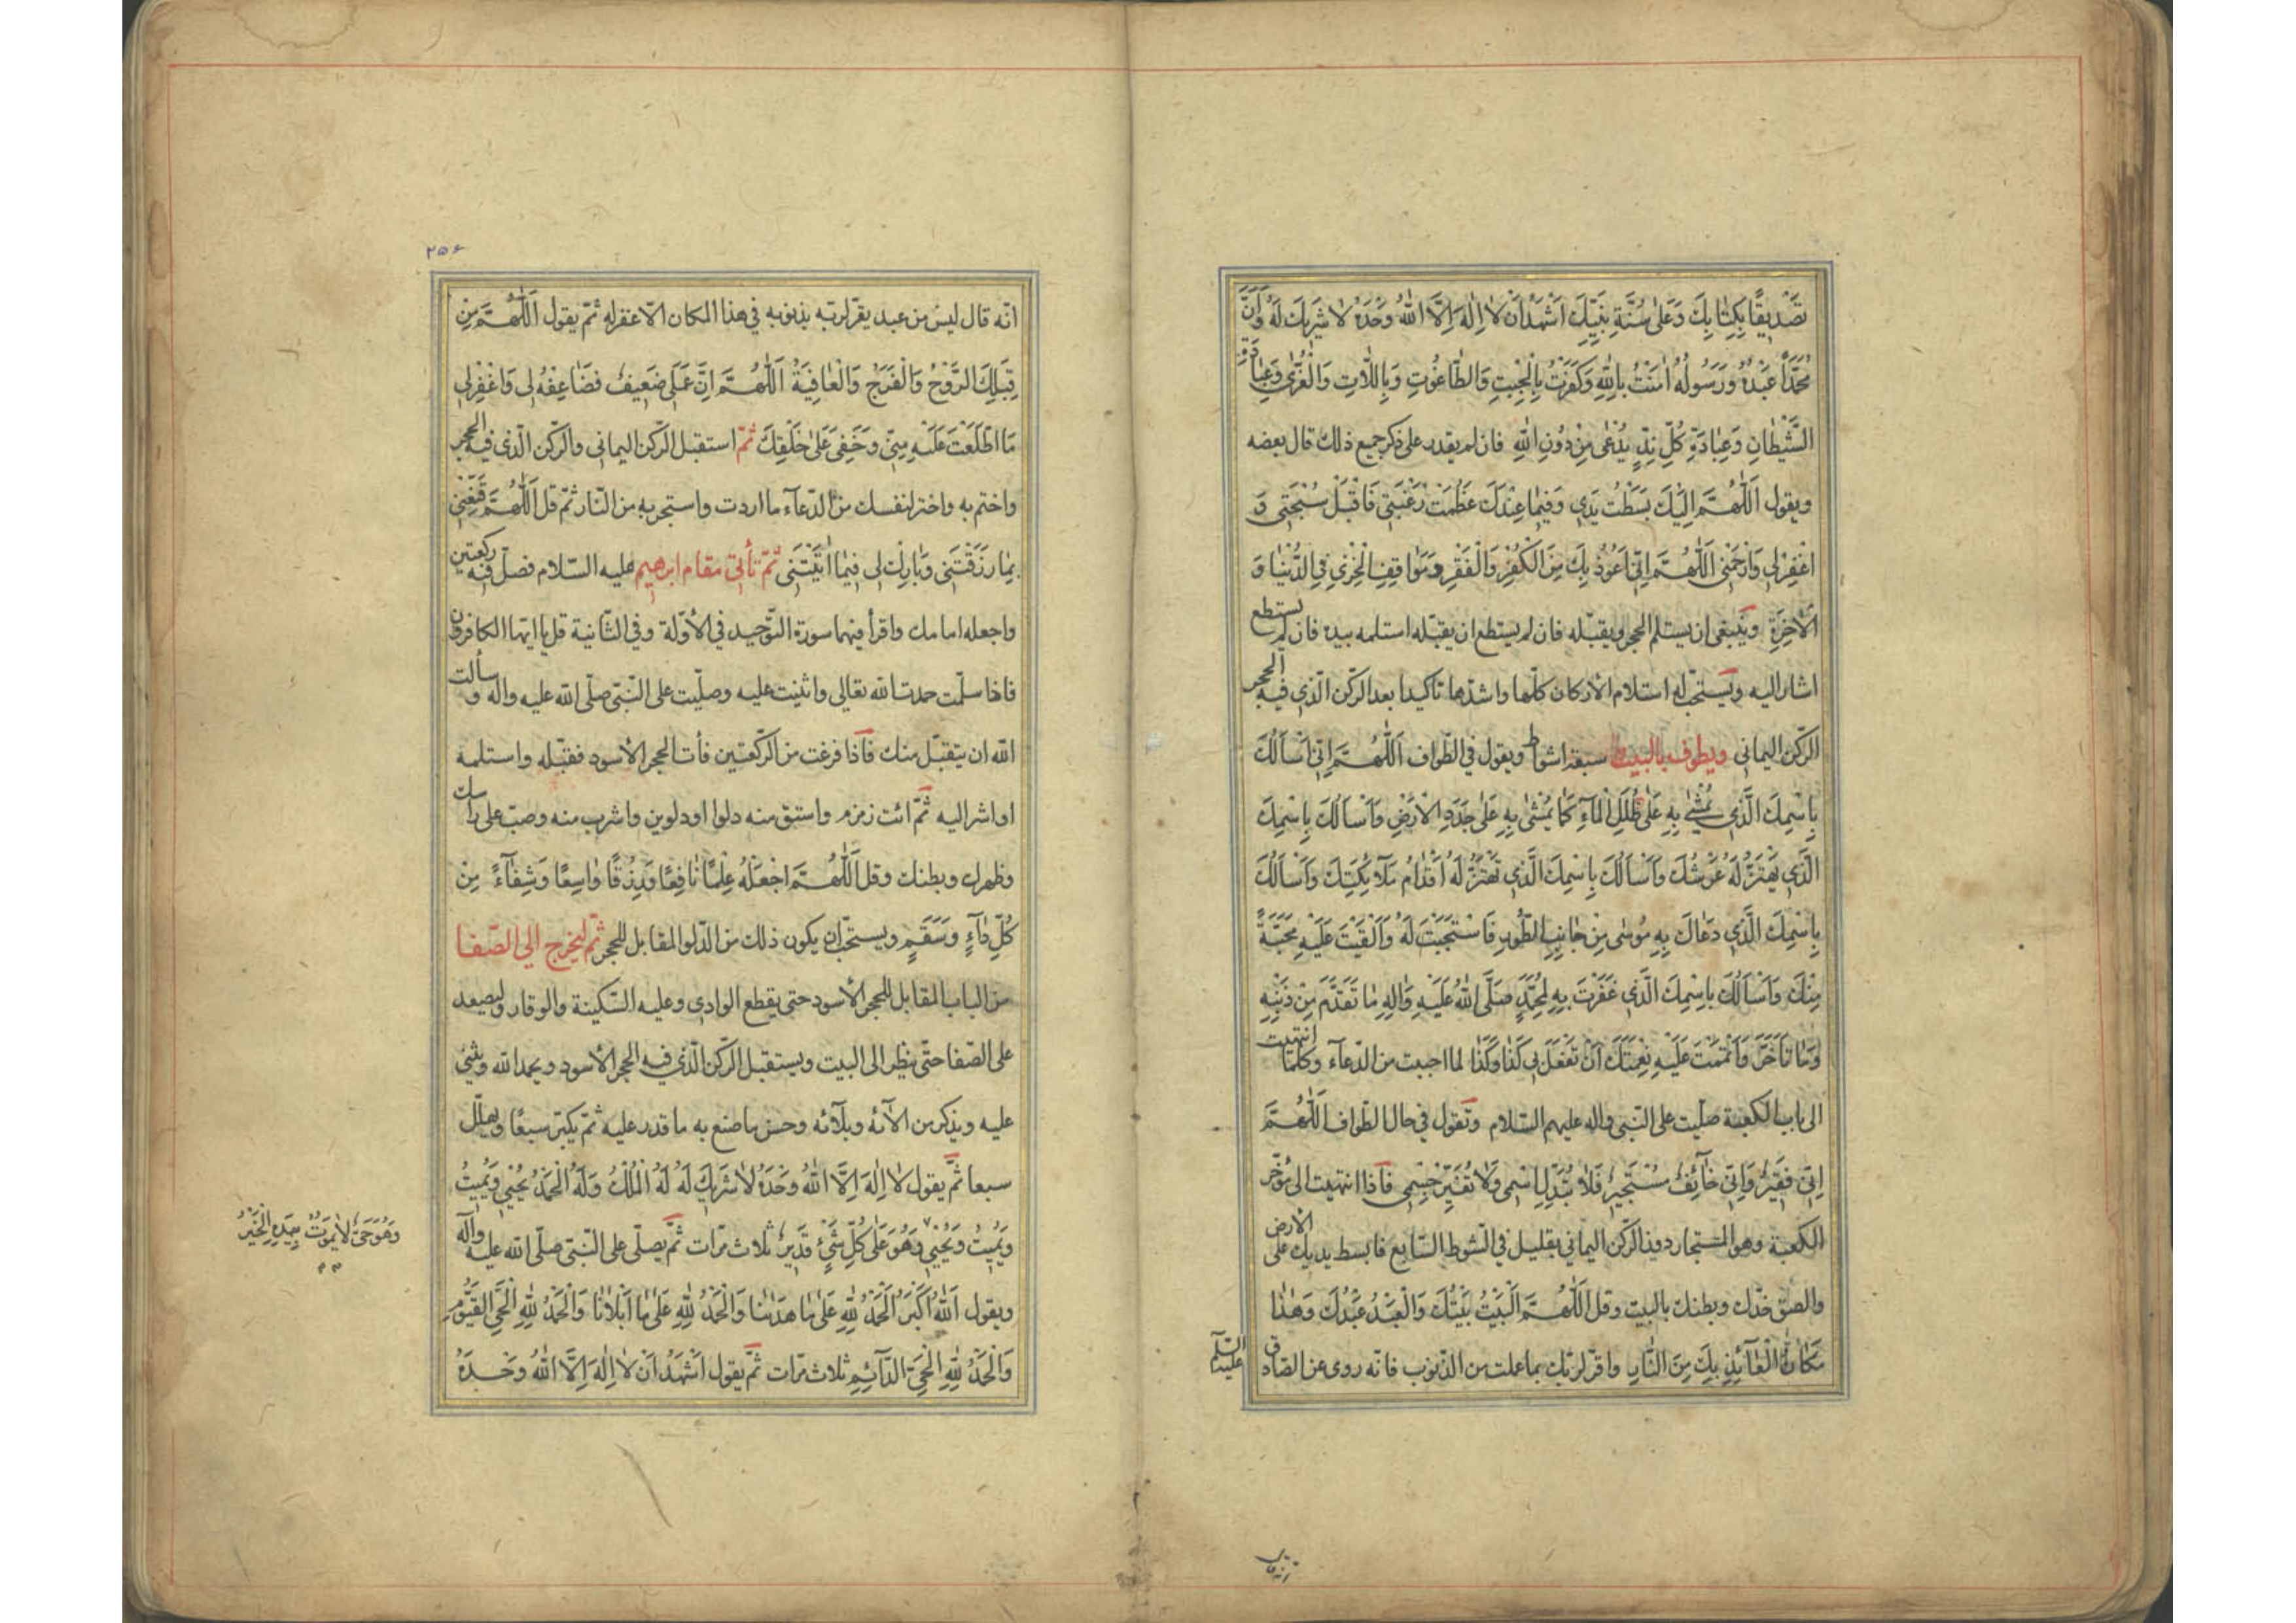 تَصْدِيقًا بِكِتَابِكَ وَعَلىٰ سُنَّةِ نَبِيِّكَ اَشْهَدُ اَنْ لاٰ اِلٰهَ اِلَّا اللهُ وَحْدَهُ لاٰ شَرِيكَ لَهُ وَاَنَّ
مُحَمَّدًا عَبْدُهُ وَرَسُولُهُ اٰمَنْتُ بِاللهِ وَكَفَرْتُ بِالْجِبْتِ وَالطَّاغُوتِ وَبِاللَّاتِ وَالْعُزّٰى وَعِبَادَةِ
الشَّيْطَانِ وَعِبَادَةِ كُلِّ نِدٍّ يُدْعٰى مِنْ دُونِ اللهِ فان لم يقدر على ذكر جميع ذلك قال بعضه
ويقول اَللّٰهُمَّ اِلَيْكَ بَسَطْتُ يَدِي وَفِيمَا عِنْدَكَ عَظُمَتْ رَغْبَتِي فَاقْبَلْ سُبْحَتِي وَ
اغْفِرْ لِي وَارْحَمْنِي اَللّٰهُمَّ اِنِّي اَعُوذُ بِكَ مِنَ الْكُفْرِ وَالْفَقْرِ وَمَوَاقِفِ الْخِزْيِ فِي الدُّنْيَا وَ
الْاٰخِرَةِ وينبغى ان يستلم الحجر ويقبّله فان لم يستطع ان يقبّله استلمه بيده فان لم يستطع
اشار اليه ويستحبّ له استلام الأركان كلّها واشدّها تأكيدا بعد الركن الّذي فيه الحجر
الركن اليماني ويطوف بالبيت سبعة اشواط ويقول في الطواف اَللّٰهُمَّ اِنِّي اَسْأَلُكَ
بِاسْمِكَ الَّذِي يُمْشٰى بِهِ عَلىٰ طُلَلِ الْمَاءِ كَمَا يُمْشٰى بِهِ عَلىٰ جَدَدِ الْاَرْضِ وَاَسْأَلُكَ بِاسْمِكَ
الَّذِي يَهْتَزُّ لَهُ عَرْشُكَ وَاَسْأَلُكَ بِاسْمِكَ الَّذِي تَهْتَزُّ لَهُ اَقْدَامُ مَلاٰئِكَتِكَ وَاَسْأَلُكَ
بِاسْمِكَ الَّذِي دَعَاكَ بِهِ مُوسٰى مِنْ جَانِبِ الطُّورِ فَاسْتَجَبْتَ لَهُ وَاَلْقَيْتَ عَلَيْهِ مَحَبَّةً
مِنْكَ وَاَسْأَلُكَ بِاسْمِكَ الَّذِي غَفَرْتَ بِهِ لِمُحَمَّدٍ صَلَّى اللهُ عَلَيْهِ وَاٰلِهِ مَا تَقَدَّمَ مِنْ ذَنْبِهِ
وَمَا تَاَخَّرَ وَاَتْمَمْتَ عَلَيْهِ نِعْمَتَكَ اَنْ تَفْعَلَ بِي كَذَا وَكَذَا لما احببت من الدّعاء وكلّما انتهيت
الى باب الكعبة صلّيت على النّبي واله عليهم السّلام وتقول في حال الطواف اَللّٰهُمَّ
اِنِّي فَقِيرٌ وَاِنِّي خَائِفٌ مُسْتَجِيرٌ فَلاٰ تُبَدِّلِ اسْمِي وَلاٰ تُغَيِّرْ جِسْمِي فاذا انتهيت الى مؤخّر
الكعبة وهو المستجار دون الركن اليماني بقليل في الشوط السّابع فابسط يديك على الارض
والصق خدّك وبطنك بالبيت وقل اَللّٰهُمَّ الْبَيْتُ بَيْتُكَ وَالْعَبْدُ عَبْدُكَ وَهٰذَا
مَكَانُ الْعَائِذِ بِكَ مِنَ النَّارِ واقرّ لربّك بما عملت من الذنوب فانّه روى عن الصّادق عليه السّلم
٢٥٤
انّه قال ليس من عبد يقرّ لربّه بذنوبه في هذا المكان الّا غفر له ثمّ يقول اَللّٰهُمَّ مِنْ
قِبَلِكَ الرَّوْحُ وَالْفَرَجُ وَالْعَافِيَةُ اَللّٰهُمَّ اِنَّ عَمَلِي ضَعِيفٌ فَضَاعِفْهُ لِي وَاغْفِرْ لِي
مَا اطَّلَعْتَ عَلَيْهِ مِنِّي وَخَفِيَ عَلىٰ خَلْقِكَ ثمّ استقبل الركن اليماني والركن الّذي فيه الحجر
واختم به واختر لنفسك من الدّعاء ما اردت واستجر به من النّار ثمّ قل اَللّٰهُمَّ قَنِّعْنِي
بِمَا رَزَقْتَنِي وَبَارِكْ لِي فِيمَا اٰتَيْتَنِي ثمّ تأتي مقام ابرهيم عليه السّلام فصلّ فيه ركعتين
واجعله امامك واقرأ فيهما سورة التوحيد في الأوّلة وفي الثّانية قل يا ايّها الكافرون
فاذا سلّمت حمدت الله تعالى واثنيت عليه وصلّيت على النّبيّ صلّى الله عليه واله وسألت
الله ان يتقبّل منك فاذا فرغت من الركعتين فأت الحجر الأسود فقبّله واستلمه
او اشر اليه ثمّ ائت زمزم واستق منه دلوا او دلوين واشرب منه وصبّ على رأسك
وظهرك وبطنك وقل اَللّٰهُمَّ اجْعَلْهُ عِلْمًا نَافِعًا وَرِزْقًا وَاسِعًا وَشِفَاءً مِنْ
كُلِّ دَاءٍ وَسَقَمٍ ويستحبّ ان يكون ذلك من الدّلو المقابل للحجر ثمّ ليخرج الى الصّفا
من الباب المقابل للحجر الأسود حتى يقطع الوادي وعليه السّكينة والوقار وليصعد
على الصّفا حتّى ينظر الى البيت ويستقبل الركن الّذي فيه الحجر الأسود ويحمد الله ويثني
عليه ويذكر من الآئه وبلآئه وحسن ما صنع به ما قدر عليه ثمّ يكبّر سبعًا ويهلّل
سبعا ثمّ يقول لاٰ اِلٰهَ اِلَّا اللهُ وَحْدَهُ لاٰ شَرِيكَ لَهُ لَهُ الْمُلْكُ وَلَهُ الْحَمْدُ يُحْيِي وَيُمِيتُ
وَيُمِيتُ وَيُحْيِي وَهُوَ عَلىٰ كُلِّ شَيْءٍ قَدِيرٌ ثلاث مرّات ثمّ يصلّى على النّبيّ صلّى الله عليه وآله
وَهُوَ حَيٌّ لاٰ يَمُوتُ بِيَدِهِ الْخَيْرُ
ويقول اَللهُ اَكْبَرُ اَلْحَمْدُ لِلّٰهِ عَلىٰ مَا هَدَانَا وَالْحَمْدُ لِلّٰهِ عَلىٰ مَا اَبْلاٰنَا وَالْحَمْدُ لِلّٰهِ الْحَيِّ الْقَيُّومِ
وَالْحَمْدُ لِلّٰهِ الْحَيِّ الدَّائِمِ ثلاث مرّات ثمّ يقول اَشْهَدُ اَنْ لاٰ اِلٰهَ اِلَّا اللهُ وَحْدَهُ